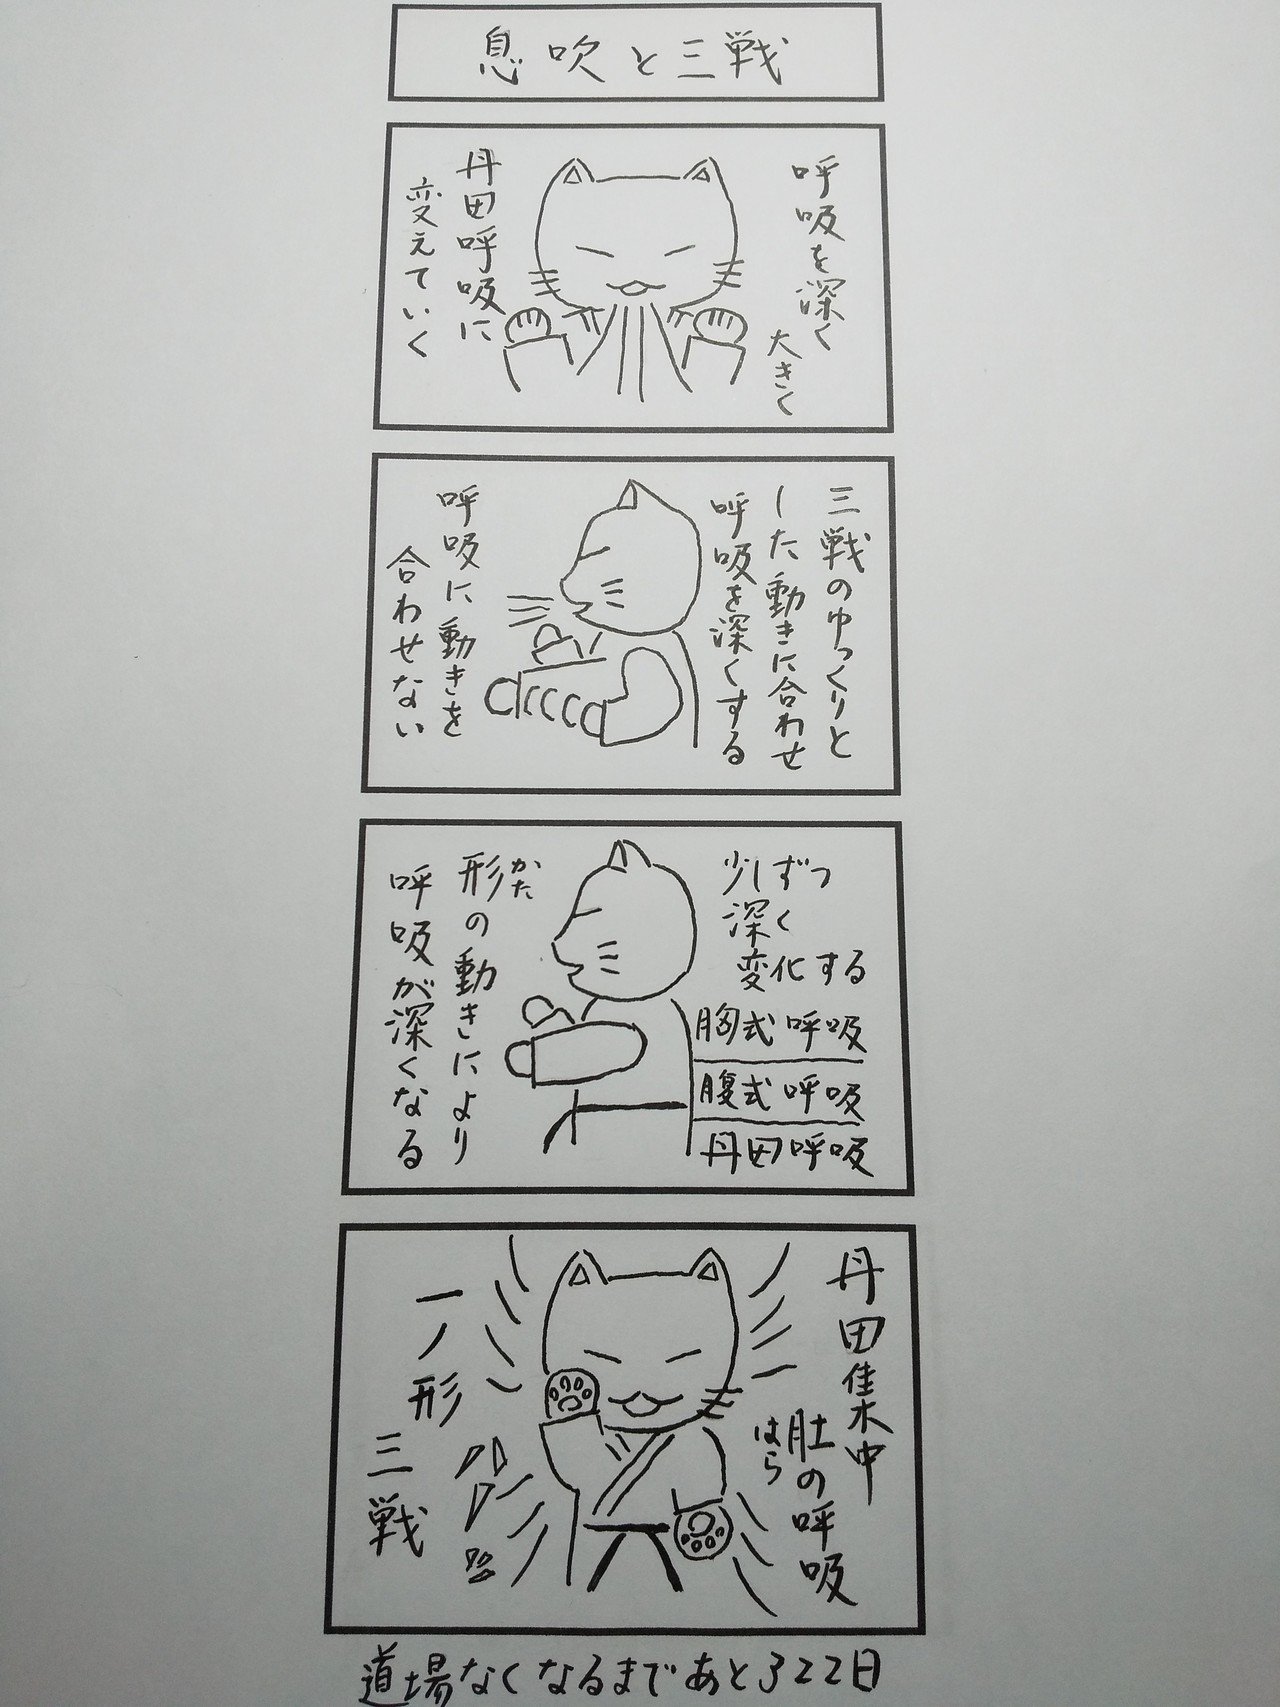 息吹と三戦
呼吸を深く
大きく
丹田呼吸に
変えていく
三戦のゆっくりと
した動きに合わせ
呼吸を深くする
呼吸に動きを
合わせない
少しずつ
深く
変化する
胸式呼吸
腹式呼吸
丹田呼吸
かた
形の動きにより
呼吸が深くなる
丹田集中
肚の呼吸
はら
一ノ形
三戦
道場なくなるまであと322日